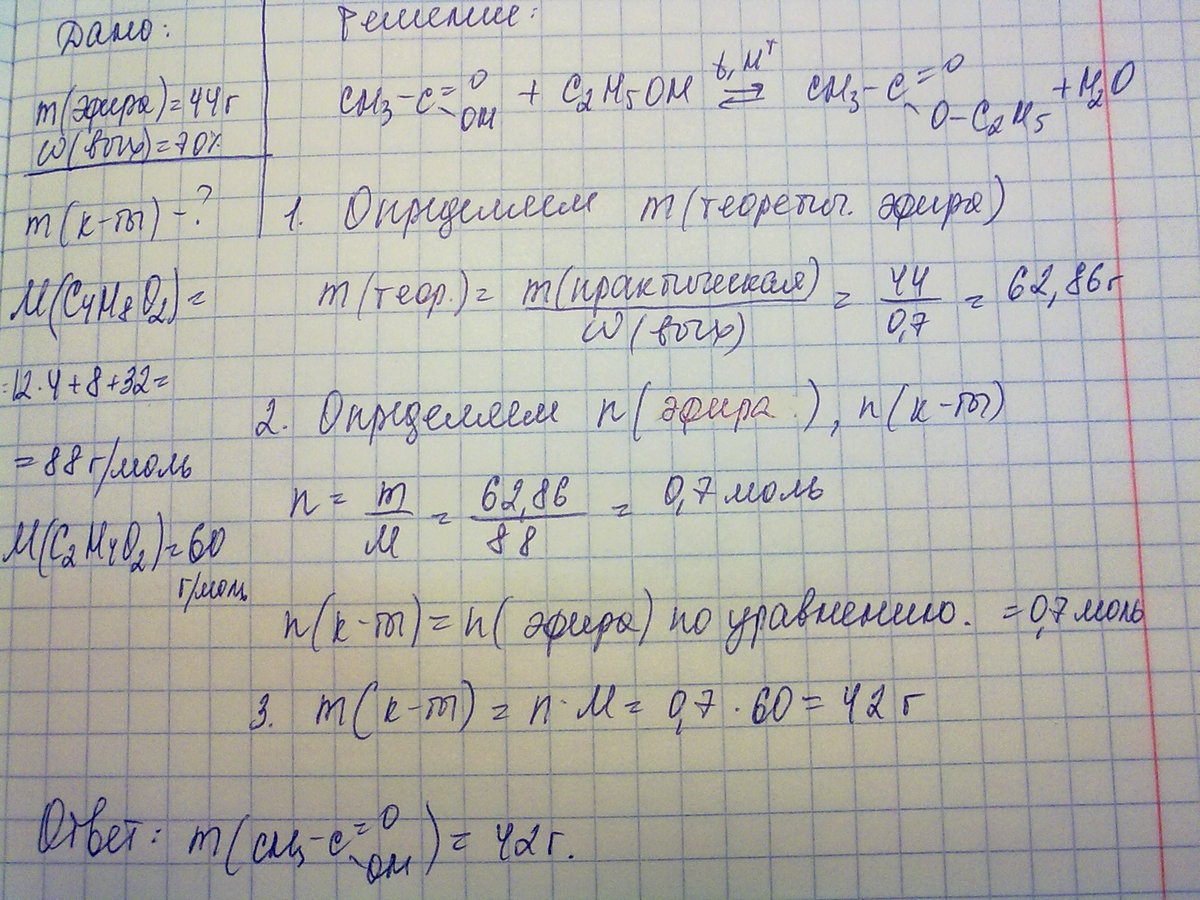 Дано:
m(эфира)=44г
ω(вых)=70%
m(к-ты)-?
M(C4H8O2)=
=12·4+8+32=
=88г/моль
M(C2H4O2)=60
г/моль
Решение:
CH3-C=O OH + C2H5OH t, H+ ⇌ CH3-C=O O-C2H5 + H2O
1. Определяем m(теоретич. эфира)
m(теор.) = m(практическая) / ω(вых) = 44 / 0,7 = 62,86г
2. Определяем n(эфира), n(к-ты)
n = m / M = 62,86 / 88 = 0,7 моль
n(к-ты)=n(эфира) по уравнению. =0,7 моль
3. m(к-ты) = n·M = 0,7·60 = 42 г
Ответ: m(CH3-C=O OH) = 42г.